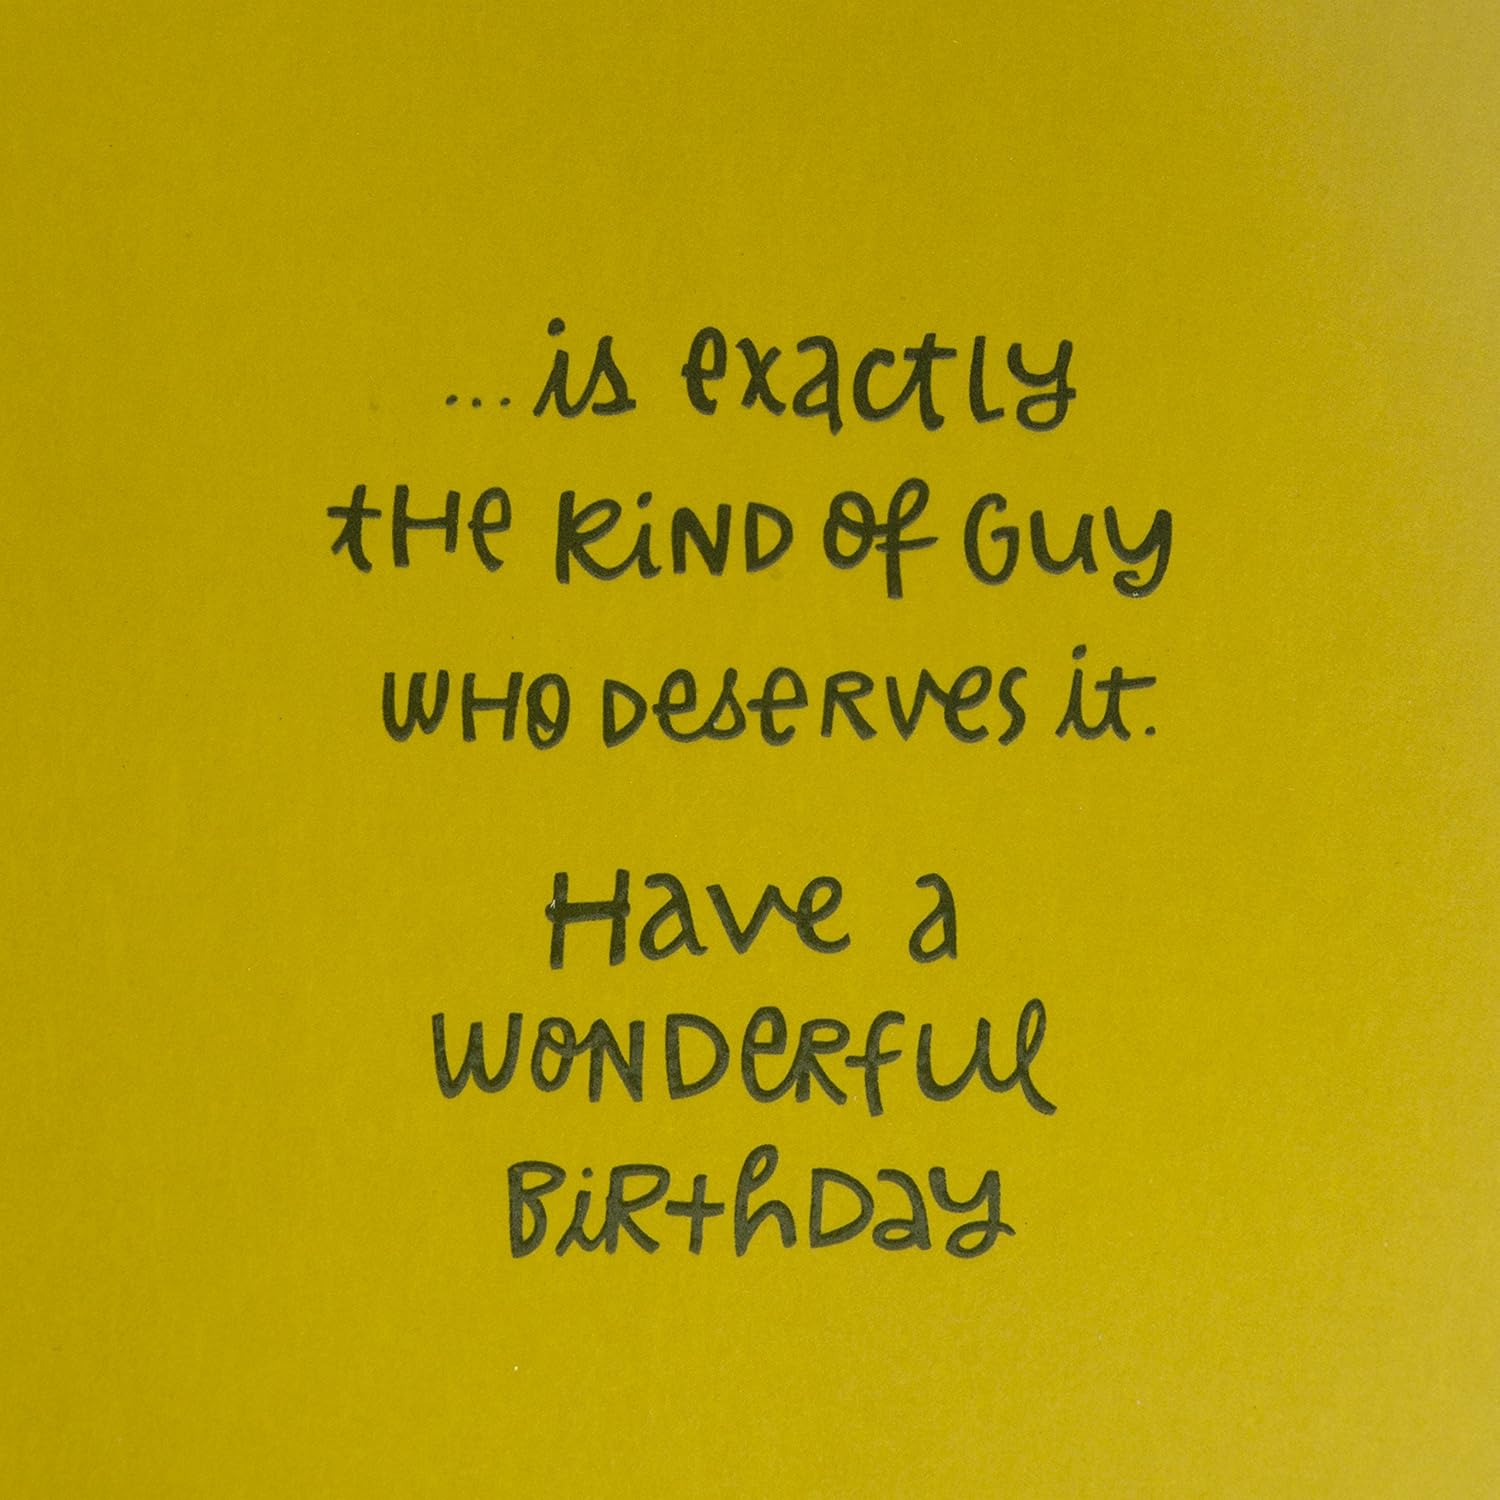 ...is exactly
the kind of guy
who deserves it.
Have a
wonderful
Birthday